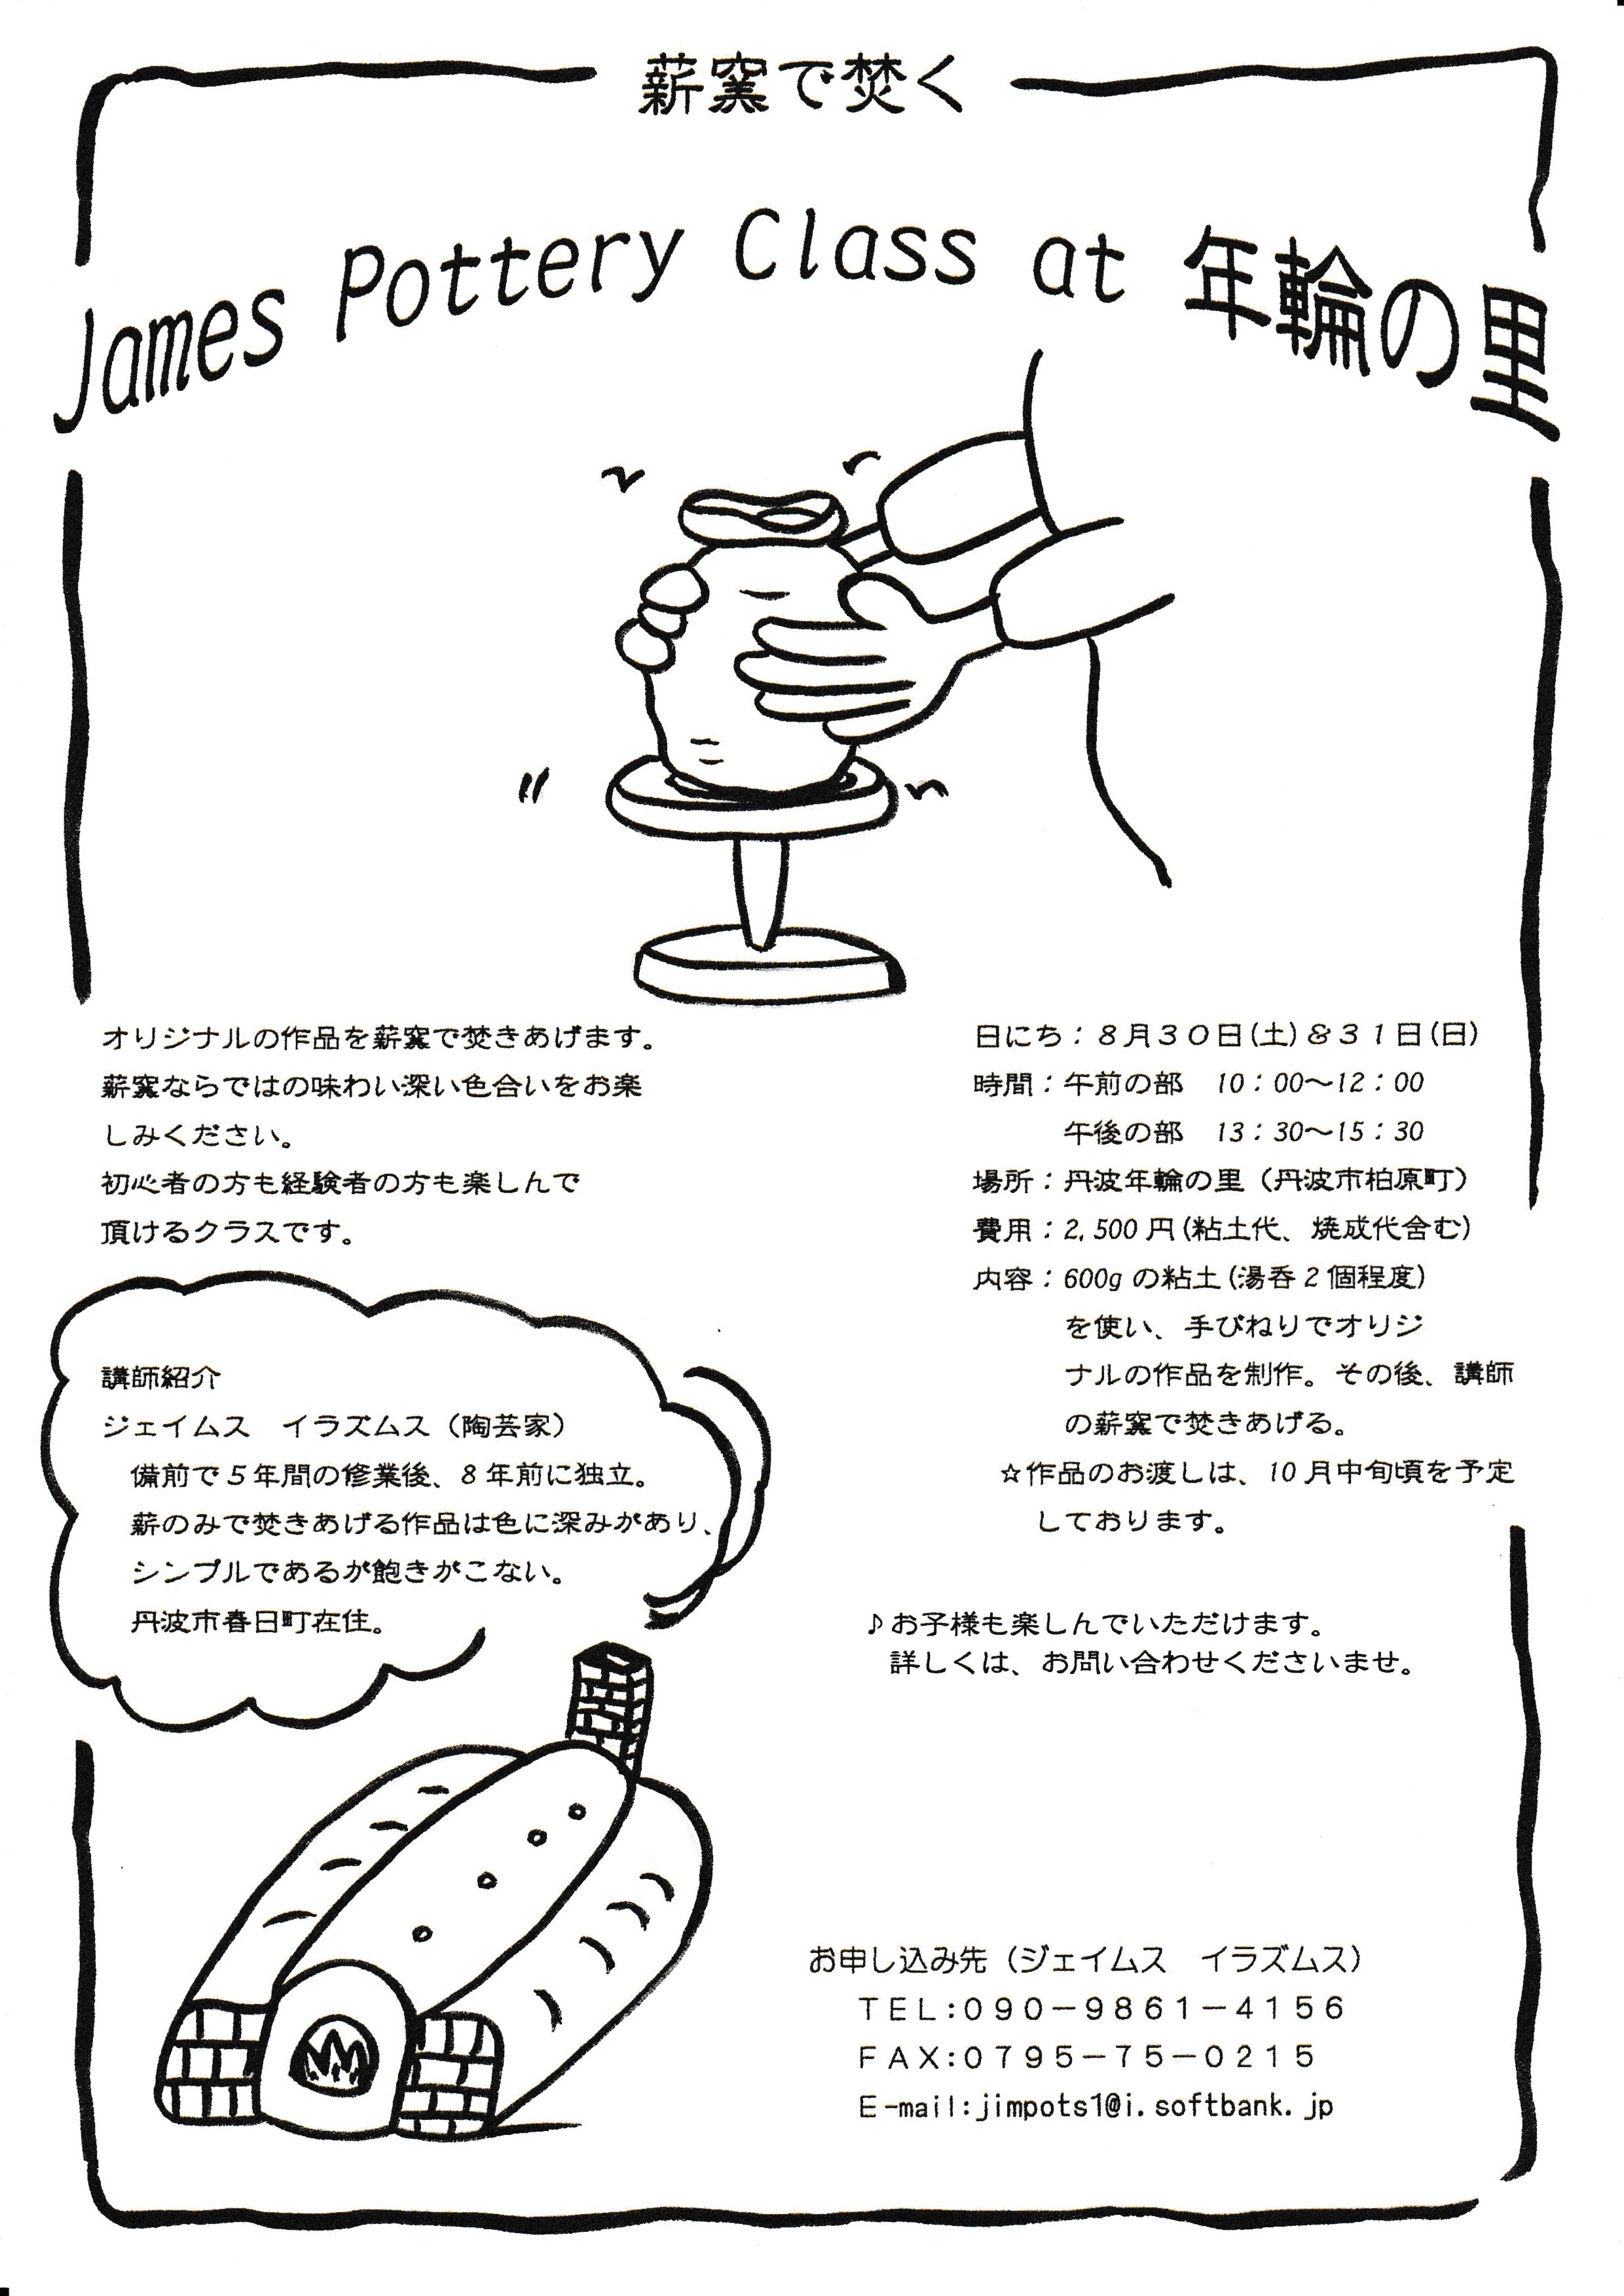 薪窯で焚く
James Pottery Class at 年輪の里
オリジナルの作品を薪窯で焚きあげます。
薪窯ならではの味わい深い色合いをお楽
しみください。
初心者の方も経験者の方も楽しんで
頂けるクラスです。
日にち：８月３０日(土)＆３１日(日)
時間：午前の部　10：00～12：00
午後の部　13：30～15：30
場所：丹波年輪の里（丹波市柏原町）
費用：2,500円(粘土代、焼成代含む)
内容：600gの粘土(湯呑2個程度)
を使い、手びねりでオリジ
ナルの作品を制作。その後、講師
の薪窯で焚きあげる。
☆作品のお渡しは、10月中旬頃を予定
しております。
講師紹介
ジェイムス　イラズムス（陶芸家）
備前で5年間の修業後、8年前に独立。
薪のみで焚きあげる作品は色に深みがあり、
シンプルであるが飽きがこない。
丹波市春日町在住。
♪お子様も楽しんでいただけます。
詳しくは、お問い合わせくださいませ。
お申し込み先（ジェイムス　イラズムス）
ＴＥＬ:０９０－９８６１－４１５６
ＦＡＸ:０７９５－７５－０２１５
E-mail:jimpots1@i.softbank.jp